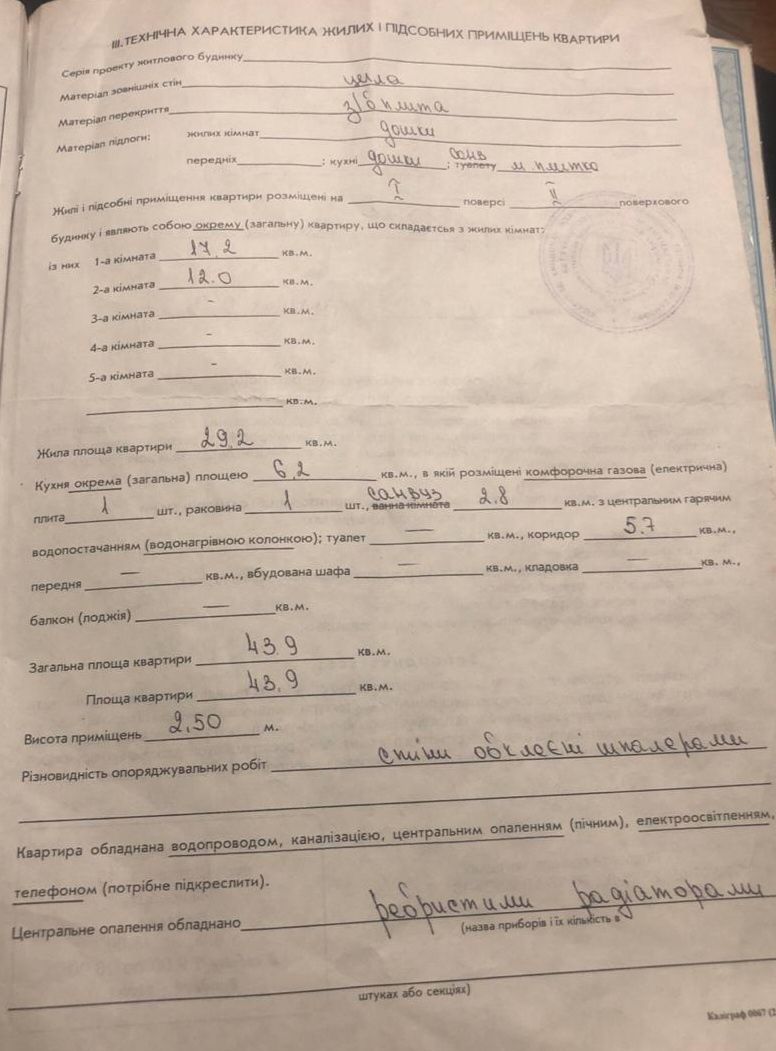 III. ТЕХНІЧНА ХАРАКТЕРИСТИКА ЖИЛИХ І ПІДСОБНИХ ПРИМІЩЕНЬ КВАРТИРИ
Серія проекту житлового будинку
Матеріал зовнішніх стін цегла
Матеріал перекриття з/б плита
Матеріал підлоги: жилих кімнат дошки
передніх ; кухні дошки ; туалету санв м. плитка
Жилі і підсобні приміщення квартири розміщені на I поверсі II поверхового
будинку і являють собою окрему (загальну) квартиру, що складається з жилих кімнат:
із них 1-а кімната 17,2 кв.м.
2-а кімната 12.0 кв.м.
3-а кімната - кв.м.
4-а кімната - кв.м.
5-а кімната - кв.м.
кв.м.
Жила площа квартири 29,2 кв.м.
Кухня окрема (загальна) площею 6,2 кв.м., в якій розміщені комфорочна газова (електрична)
плита 1 шт., раковина 1 шт., ванна кімната санвуз 2,8 кв.м. з центральним гарячим
водопостачанням (водонагрівною колонкою); туалет — кв.м., коридор 5.7 кв.м.,
передня — кв.м., вбудована шафа — кв.м., кладовка — кв. м.,
балкон (лоджія) — кв.м.
Загальна площа квартири 43.9 кв.м.
Площа квартири 43,9 кв.м.
Висота приміщень 2,50 м.
Різновидність опоряджувальних робіт стіни обклеєні шпалерами
Квартира обладнана водопроводом, каналізацією, центральним опаленням (пічним), електроосвітленням,
телефоном (потрібне підкреслити).
Центральне опалення обладнано ребристими радіаторами
(назва приборів і їх кількість в
штуках або секціях)
Каліграф 0067 (2